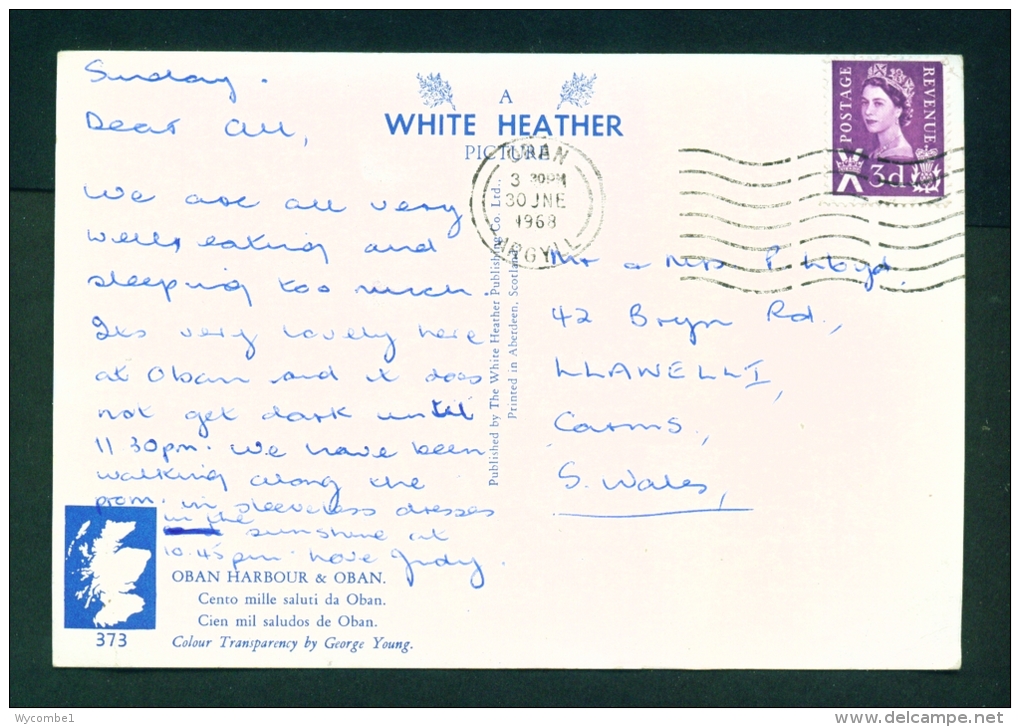 Sunday.
Dear All,
We are all very
well, eating and
sleeping too much.
Its very lovely here
at Oban and it does
not get dark until
11 30pm. We have been
walking along the
prom. in sleeveless dresses
in the sunshine at
10.45pm. Love Judy.
A
WHITE HEATHER
PICTURE
OBAN
3 30PM
30 JNE
1968
ARGYLL
POSTAGE
REVENUE
3d
Published by The White Heather Publishing Co. Ltd.,
Printed in Aberdeen, Scotland
Mr & Mrs P. Lloyd,
42 Bryn Rd.,
LLANELLI,
Carms,
S. Wales,
373
OBAN HARBOUR & OBAN.
Cento mille saluti da Oban.
Cien mil saludos de Oban.
Colour Transparency by George Young.
Wycombe1
www.delcampe.net